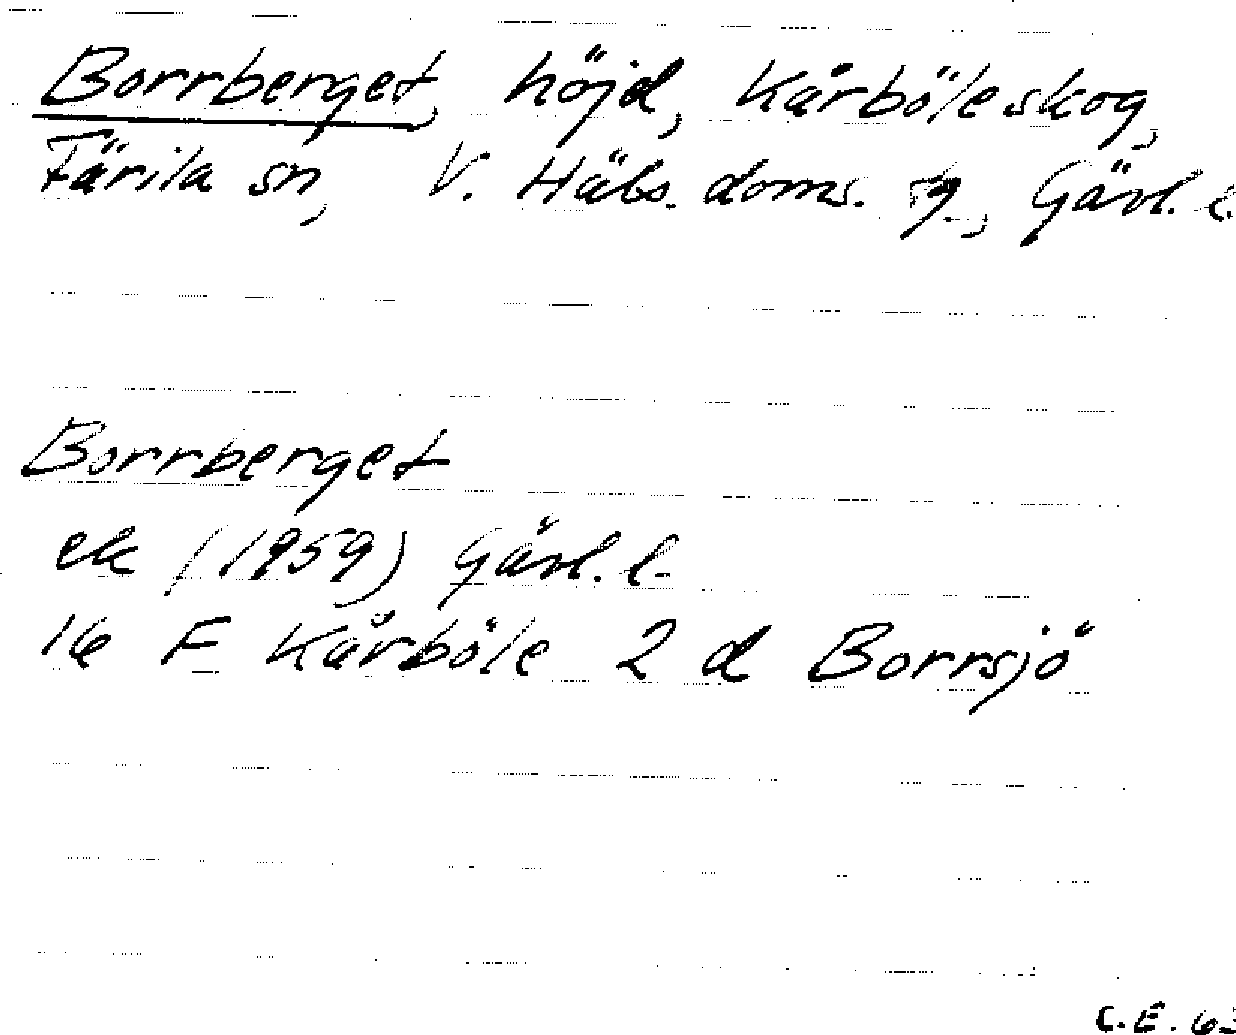 Borrberget, höjd, Kårböleskog,
Färila sn, V. Häls. doms. sg., Gävl. l.
Borrberget
ek (1959) Gävl. l.
16 F Kårböle 2 d Borrsjö
C.E. 63